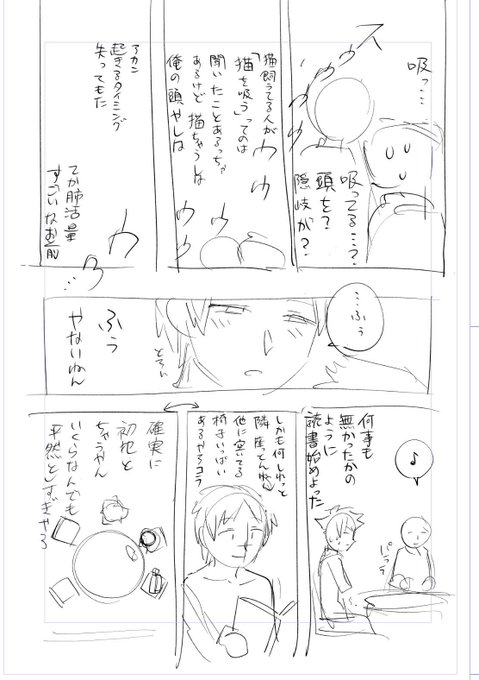 スゥゥゥゥ
吸っ…
吸ってる…?
頭を?
隠岐が?
猫飼うてる人が
「猫を吸う」っての
聞いたことあるっちゃ
あるけど 猫ちゃうしな
俺の頭やしな
ゥゥゥゥ
アカン
起きるタイミング
失ってもた
てか肺活量
すっごいなお前
ゥゥ…
…ふぅ
とろん
ふぅ
やないねん
何事も
無かったかの
ように
読書始めよった
♪
しかも何しれっと
隣座ってんねん
他に空いてる
椅子いっぱい
あるやろコラ
確実に
初犯と
ちゃうやん
いくらなんでも
平然としすぎやろ